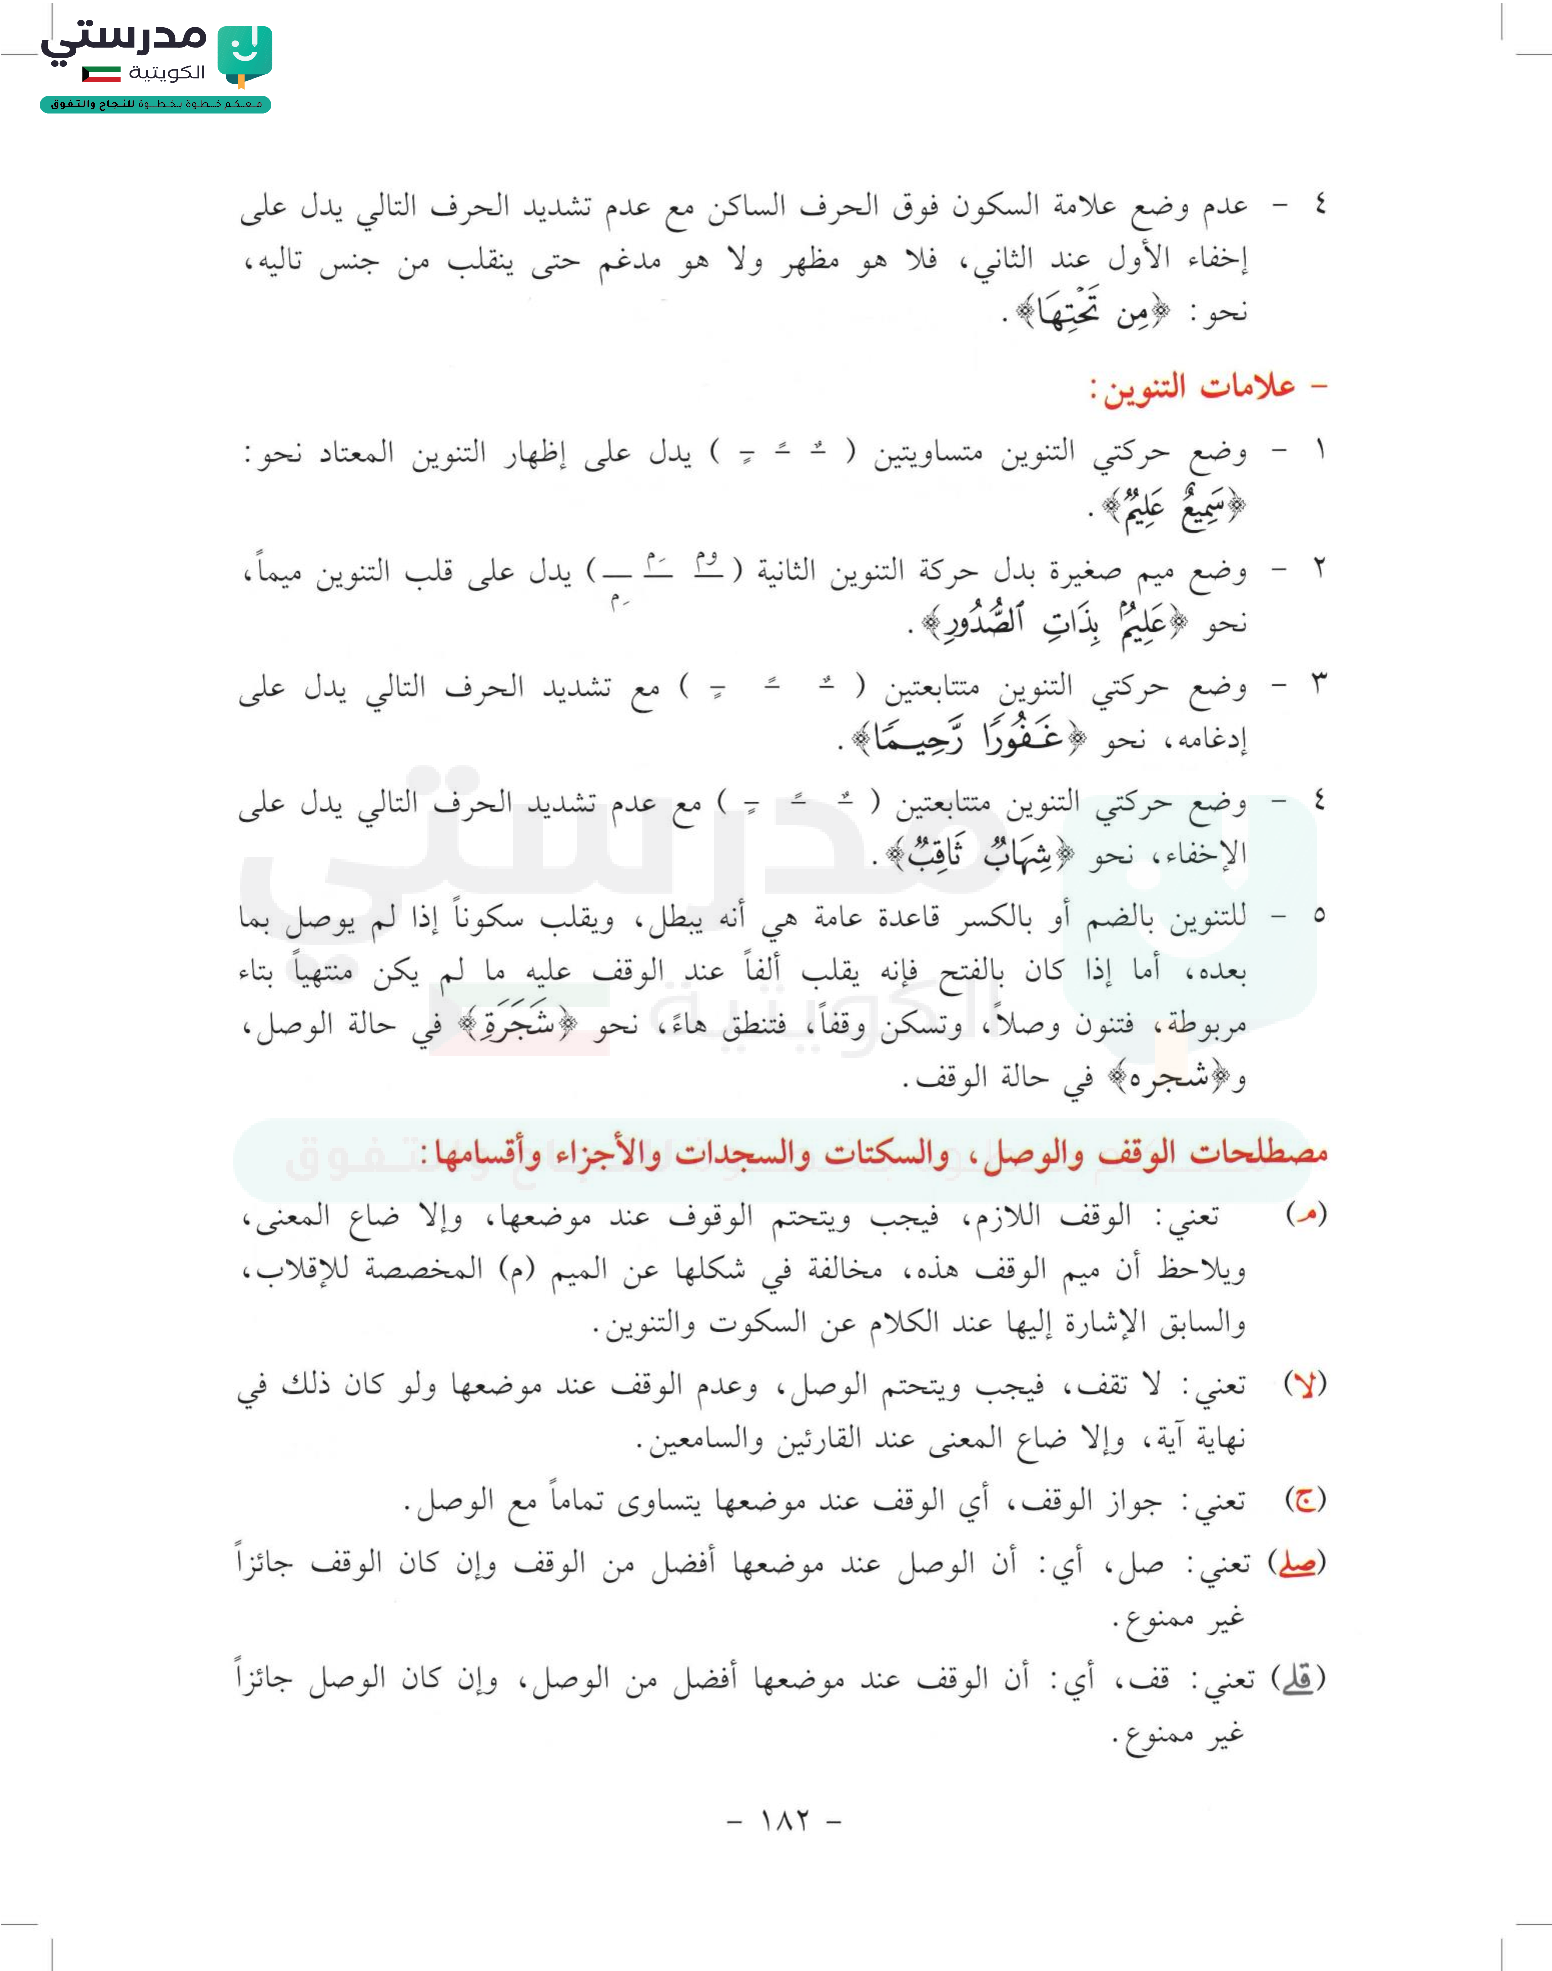 مدرستي
الكويتية
معكم خطوة بخطوة للنجاح والتفوق
٤ - عدم وضع علامة السكون فوق الحرف الساكن مع عدم تشديد الحرف التالي يدل على
إخفاء الأول عند الثاني، فلا هو مظهر ولا هو مدغم حتى ينقلب من جنس تاليه،
نحو: ﴿مِن تَحْتِهَا﴾.
- علامات التنوين:
١ - وضع حركتي التنوين متساويتين ( ـٌ ـً ـٍ ) يدل على إظهار التنوين المعتاد نحو:
﴿سَمِيعٌ عَلِيمٌ﴾.
٢ - وضع ميم صغيرة بدل حركة التنوين الثانية ( ـُم ـَم ـِم ) يدل على قلب التنوين ميماً،
نحو ﴿عَلِيمُۢ بِذَاتِ ٱلصُّدُورِ﴾.
٣ - وضع حركتي التنوين متتابعتين ( ـٌ ـً ـٍ ) مع تشديد الحرف التالي يدل على
إدغامه، نحو ﴿غَفُورًا رَّحِيمًا﴾.
٤ - وضع حركتي التنوين متتابعتين ( ـٌ ـً ـٍ ) مع عدم تشديد الحرف التالي يدل على
الإخفاء، نحو ﴿شِهَابٌ ثَاقِبٌ﴾.
٥ - للتنوين بالضم أو بالكسر قاعدة عامة هي أنه يبطل، ويقلب سكوناً إذا لم يوصل بما
بعده، أما إذا كان بالفتح فإنه يقلب ألفاً عند الوقف عليه ما لم يكن منتهياً بتاء
مربوطة، فتنون وصلاً، وتسكن وقفاً، فتنطق هاءً، نحو ﴿شَجَرَةِ﴾ في حالة الوصل،
و﴿شجره﴾ في حالة الوقف.
مصطلحات الوقف والوصل، والسكتات والسجدات والأجزاء وأقسامها:
(مـ) تعني: الوقف اللازم، فيجب ويتحتم الوقوف عند موضعها، وإلا ضاع المعنى،
ويلاحظ أن ميم الوقف هذه، مخالفة في شكلها عن الميم (م) المخصصة للإقلاب،
والسابق الإشارة إليها عند الكلام عن السكوت والتنوين.
(لا) تعني: لا تقف، فيجب ويتحتم الوصل، وعدم الوقف عند موضعها ولو كان ذلك في
نهاية آية، وإلا ضاع المعنى عند القارئين والسامعين.
(ج) تعني: جواز الوقف، أي الوقف عند موضعها يتساوى تماماً مع الوصل.
(صلے) تعني: صل، أي: أن الوصل عند موضعها أفضل من الوقف وإن كان الوقف جائزاً
غير ممنوع.
(قلے) تعني: قف، أي: أن الوقف عند موضعها أفضل من الوصل، وإن كان الوصل جائزاً
غير ممنوع.
- ١٨٢ -